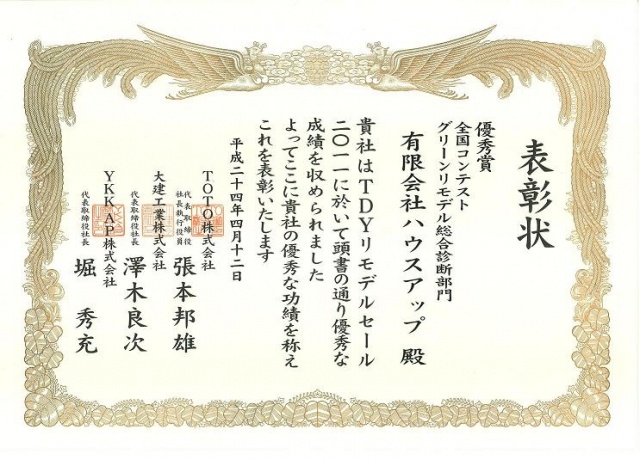 表彰状
優秀賞
全国コンテスト
グリーンリモデル総合診断部門
有限会社ハウスアップ 殿
貴社はTDYリモデルセール
二〇一一に於いて頭書の通り優秀な
成績を収められました
よってここに貴社の優秀な功績を称え
これを表彰いたします
平成二十四年四月十二日
TOTO株式会社
代表取締役
社長執行役員
張本邦雄
大建工業株式会社
代表取締役社長
澤木良次
YKK AP株式会社
代表取締役社長
堀 秀充